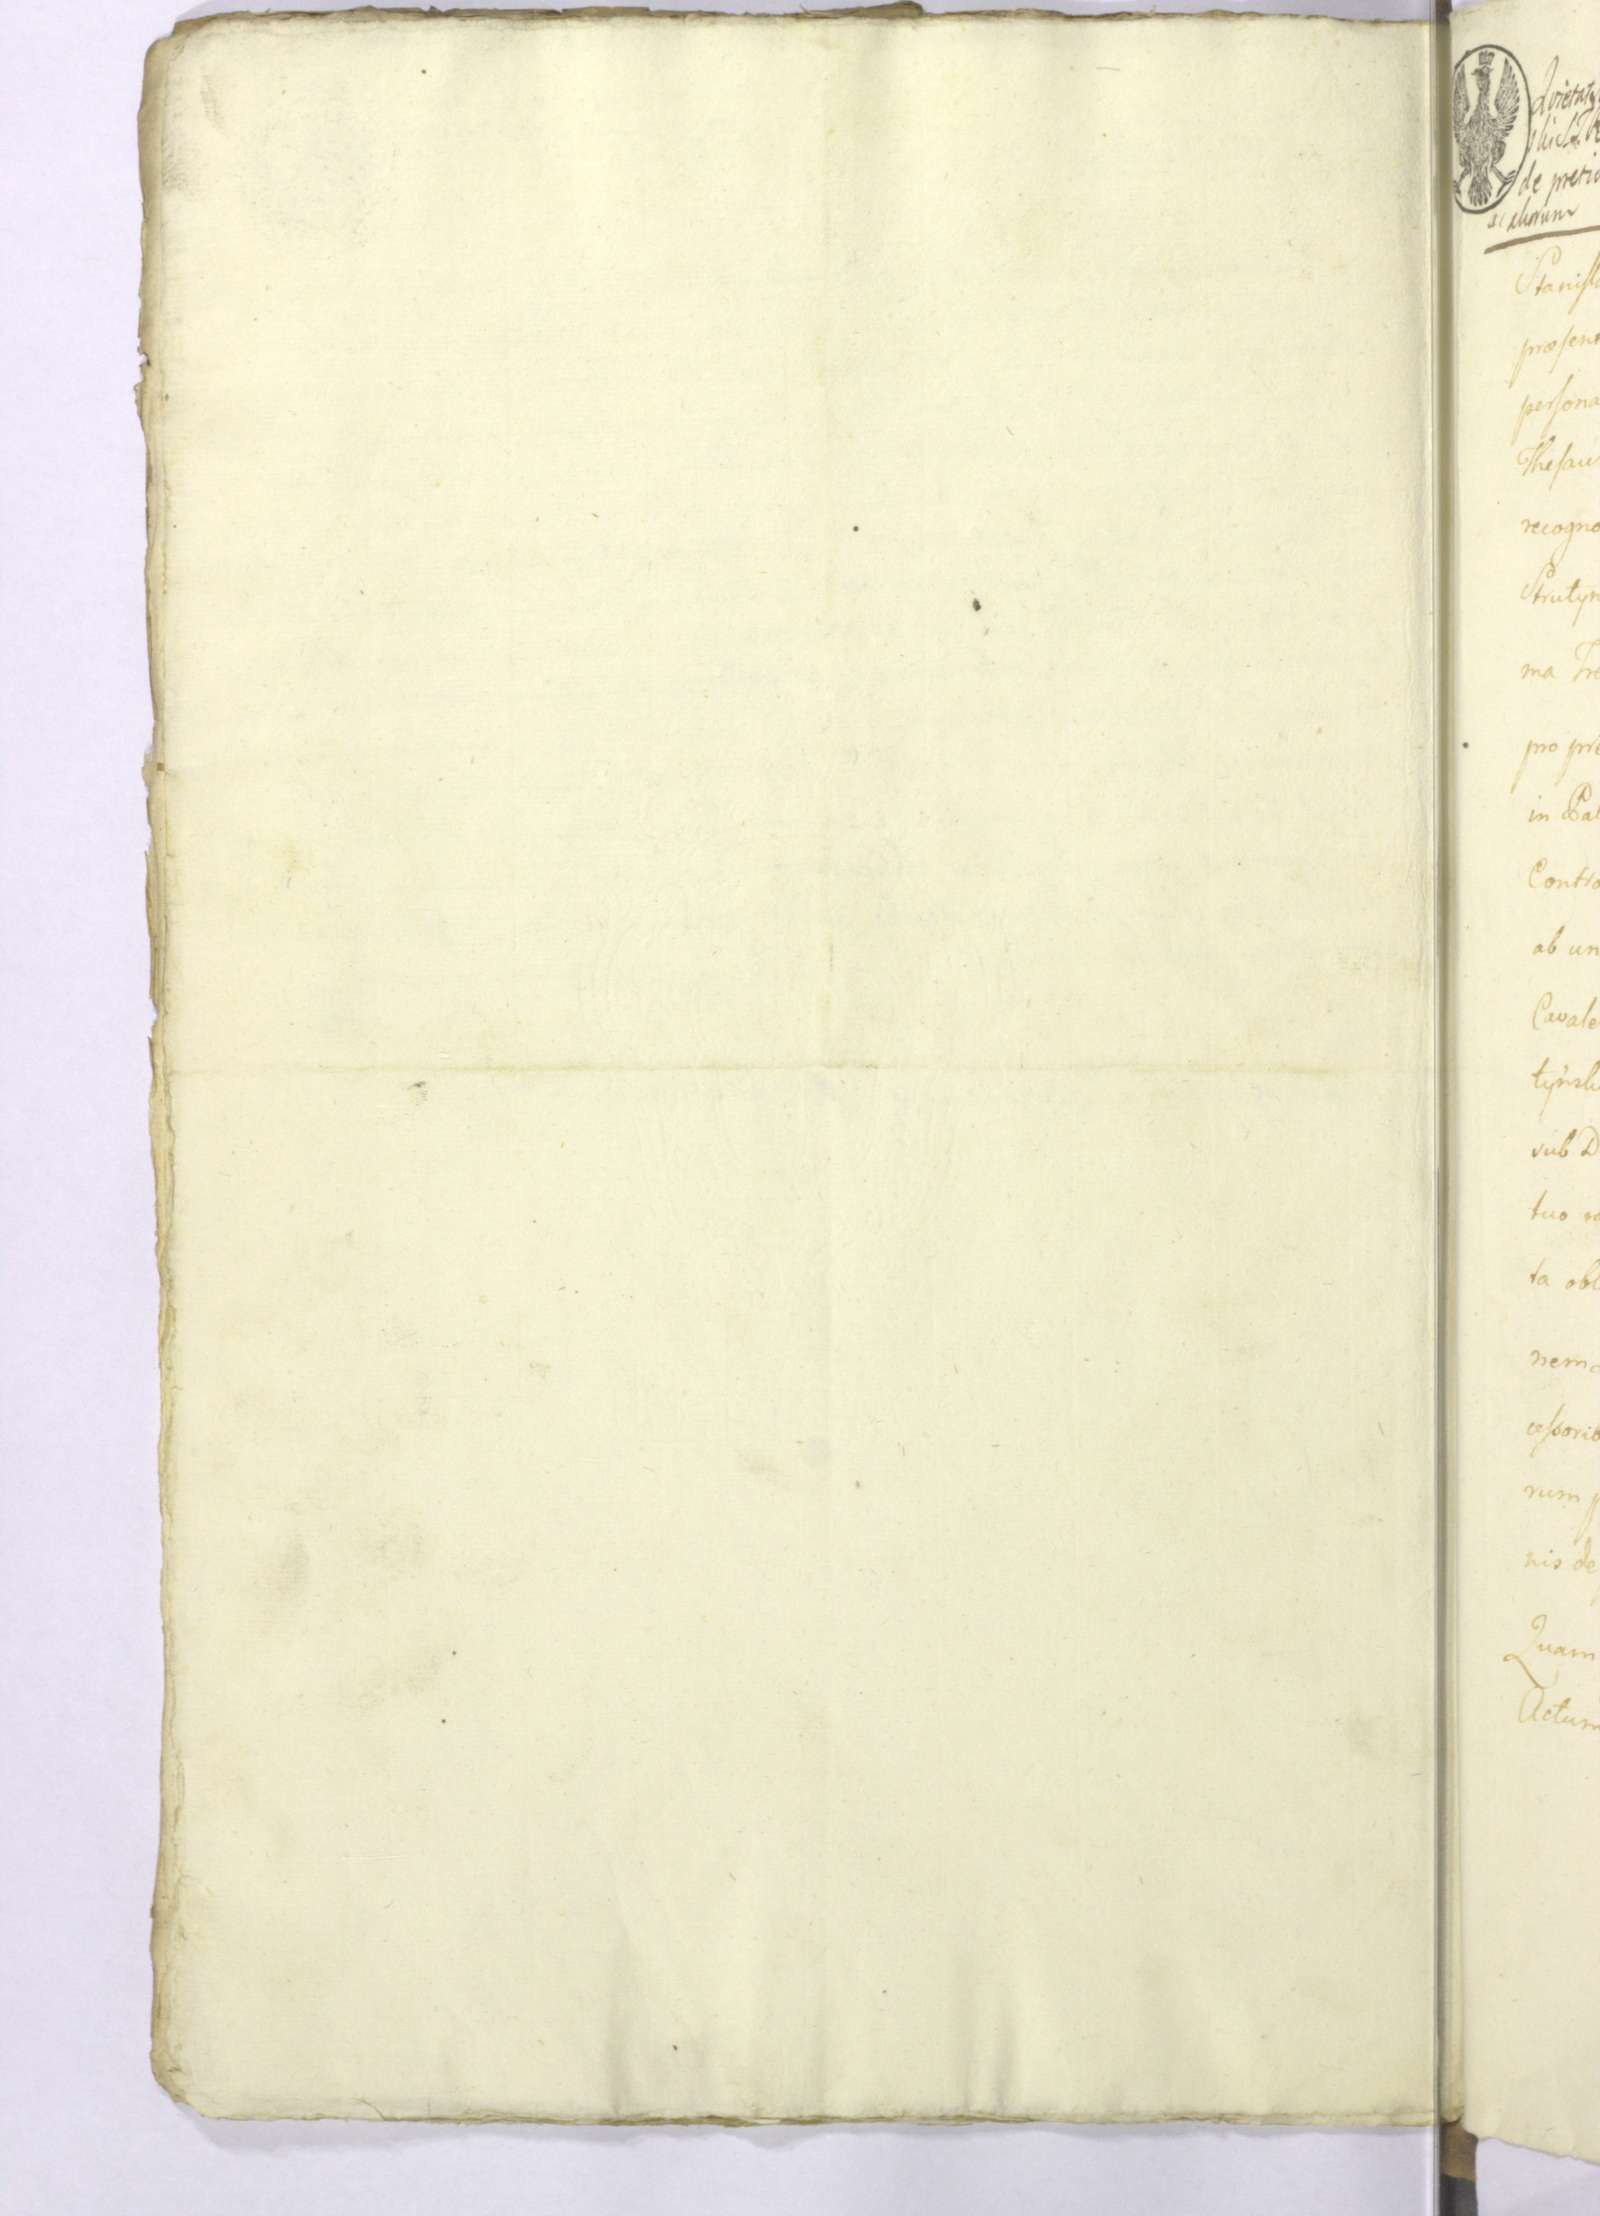 de pretio
Stanisla
præsent
persona
Thesau
recogno
Strutyn
ma Tre
pro pre
in Pal
Contra
ab un
Cavale
tynsk
sub D
tuo
ta obl
nem
cessorib
rum p
nis de
Quam
Actum